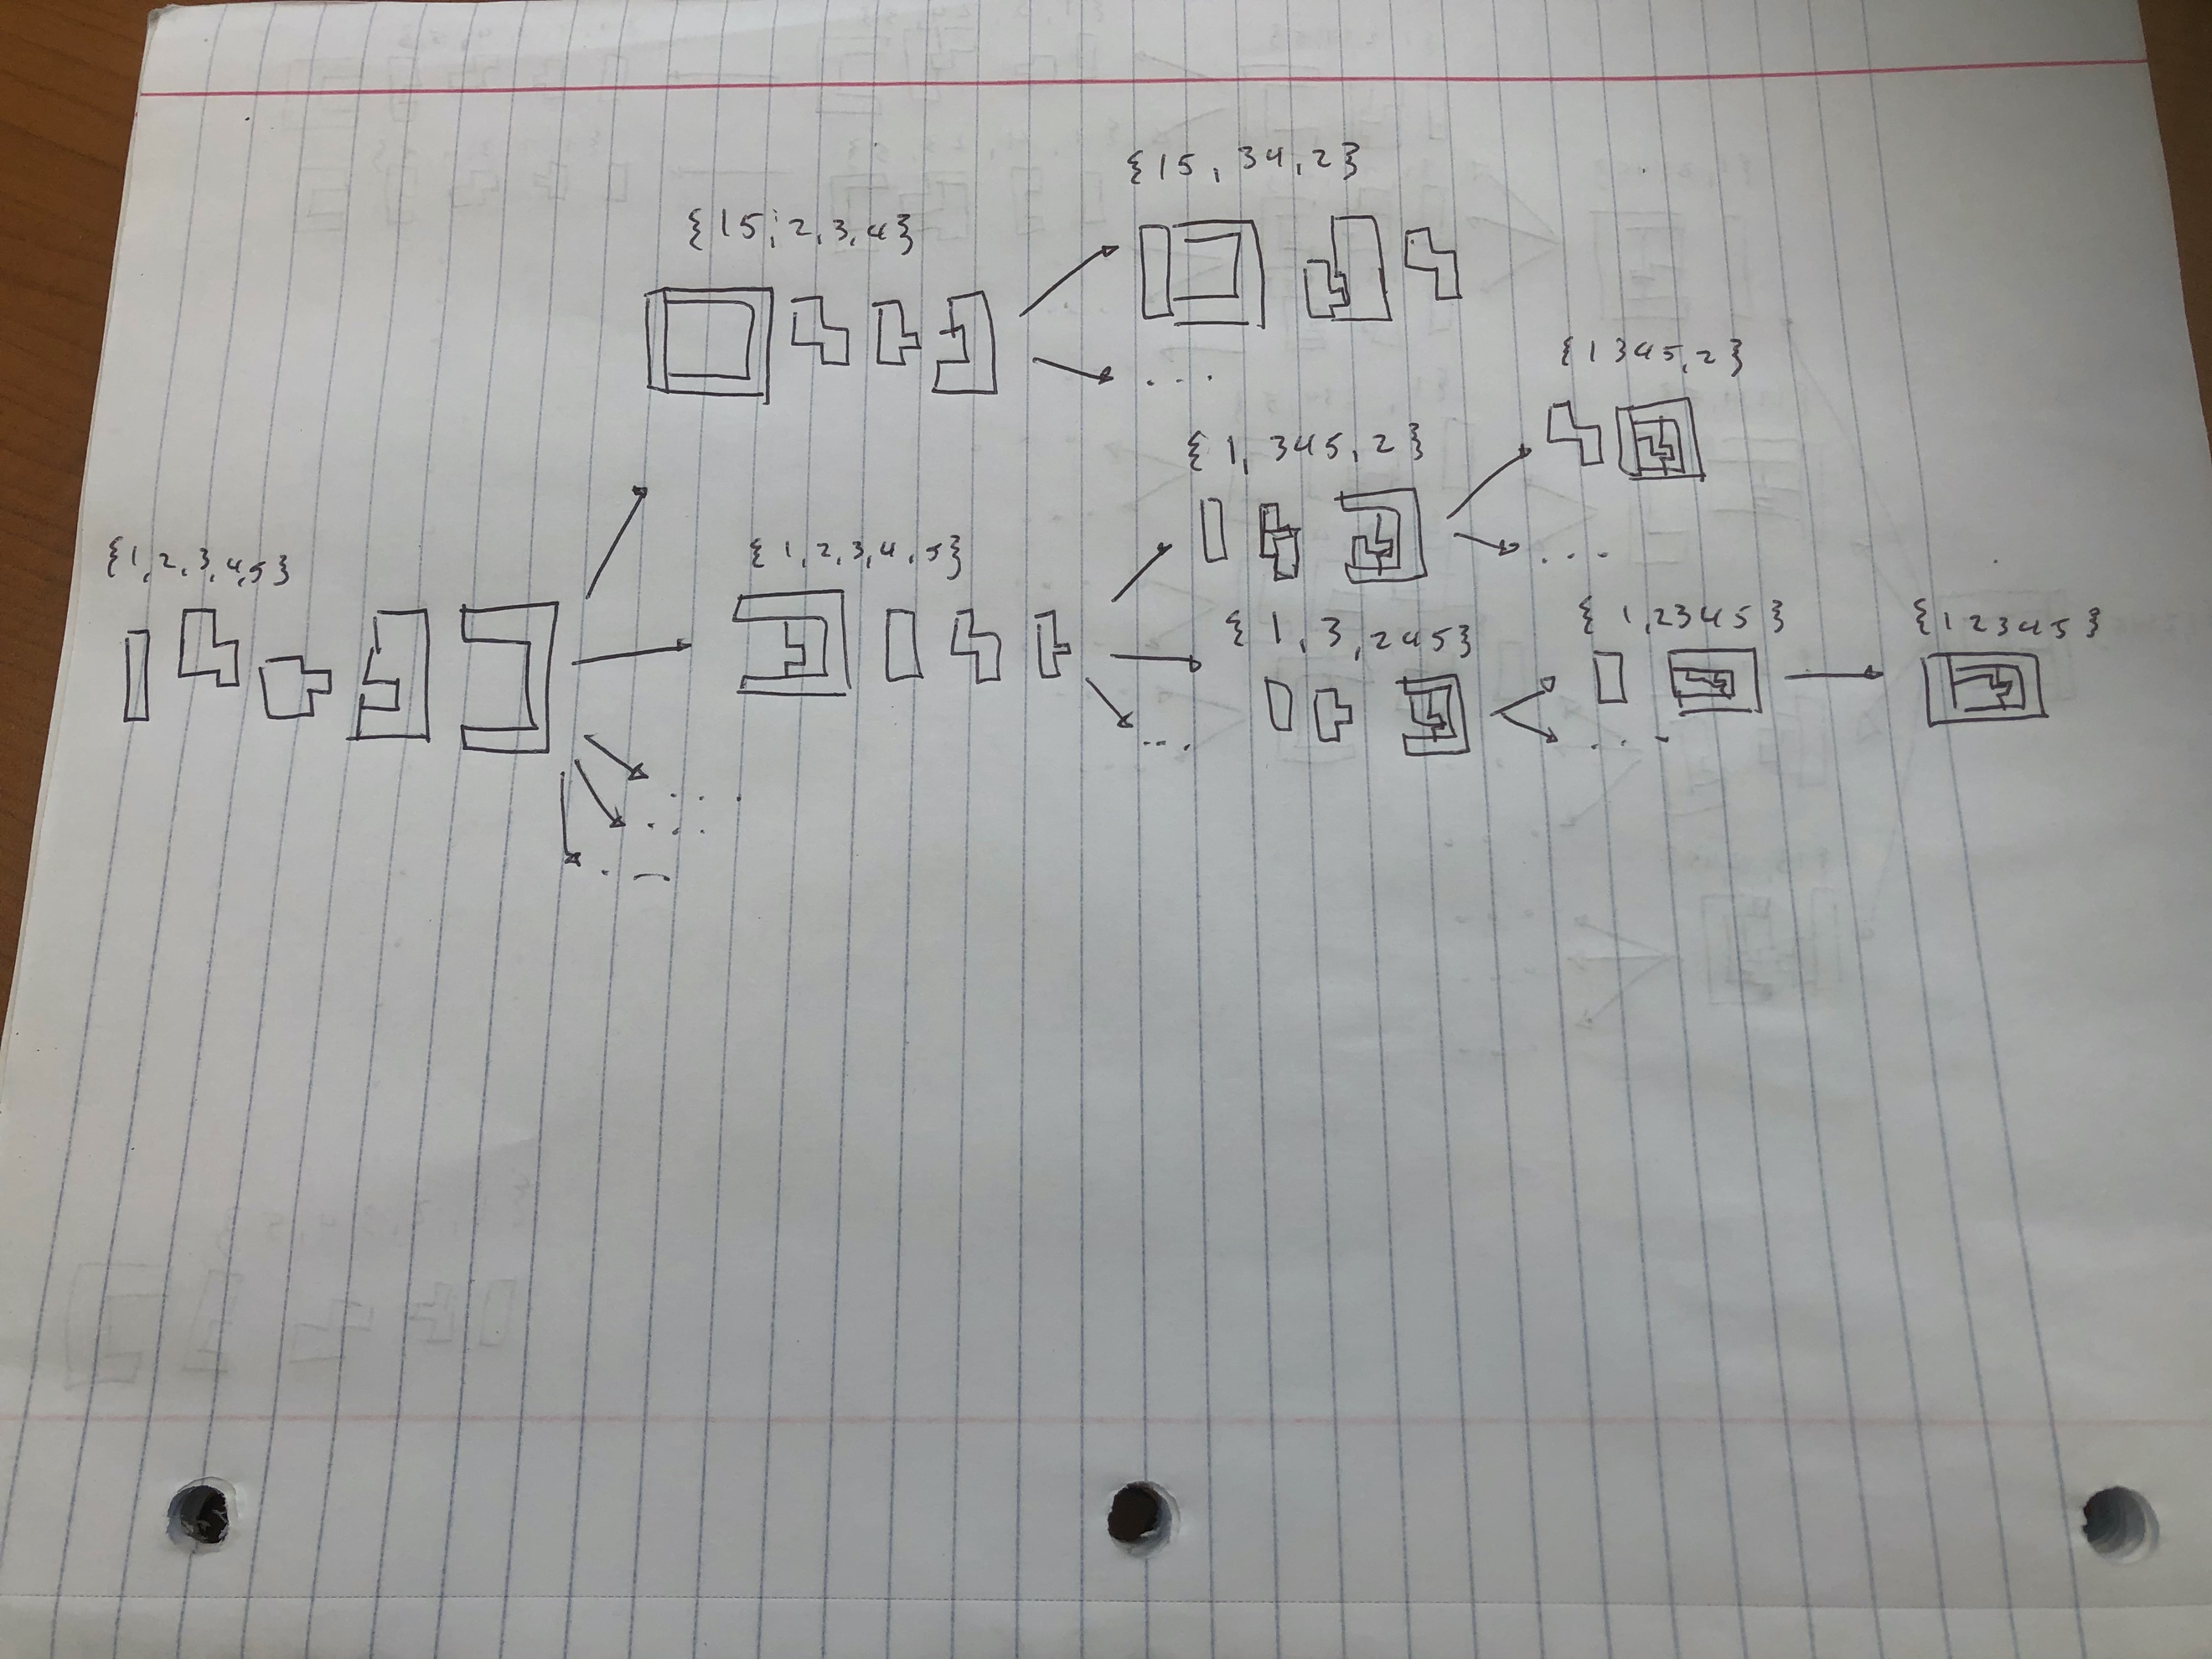 {15, 34, 2}
{15; 2, 3, 4}
{1345, 2}
{1, 345, 2}
{1, 2, 3, 4, 5}
{1, 2, 3, 4, 5}
{1, 3, 245}
{1, 2345}
{12345}